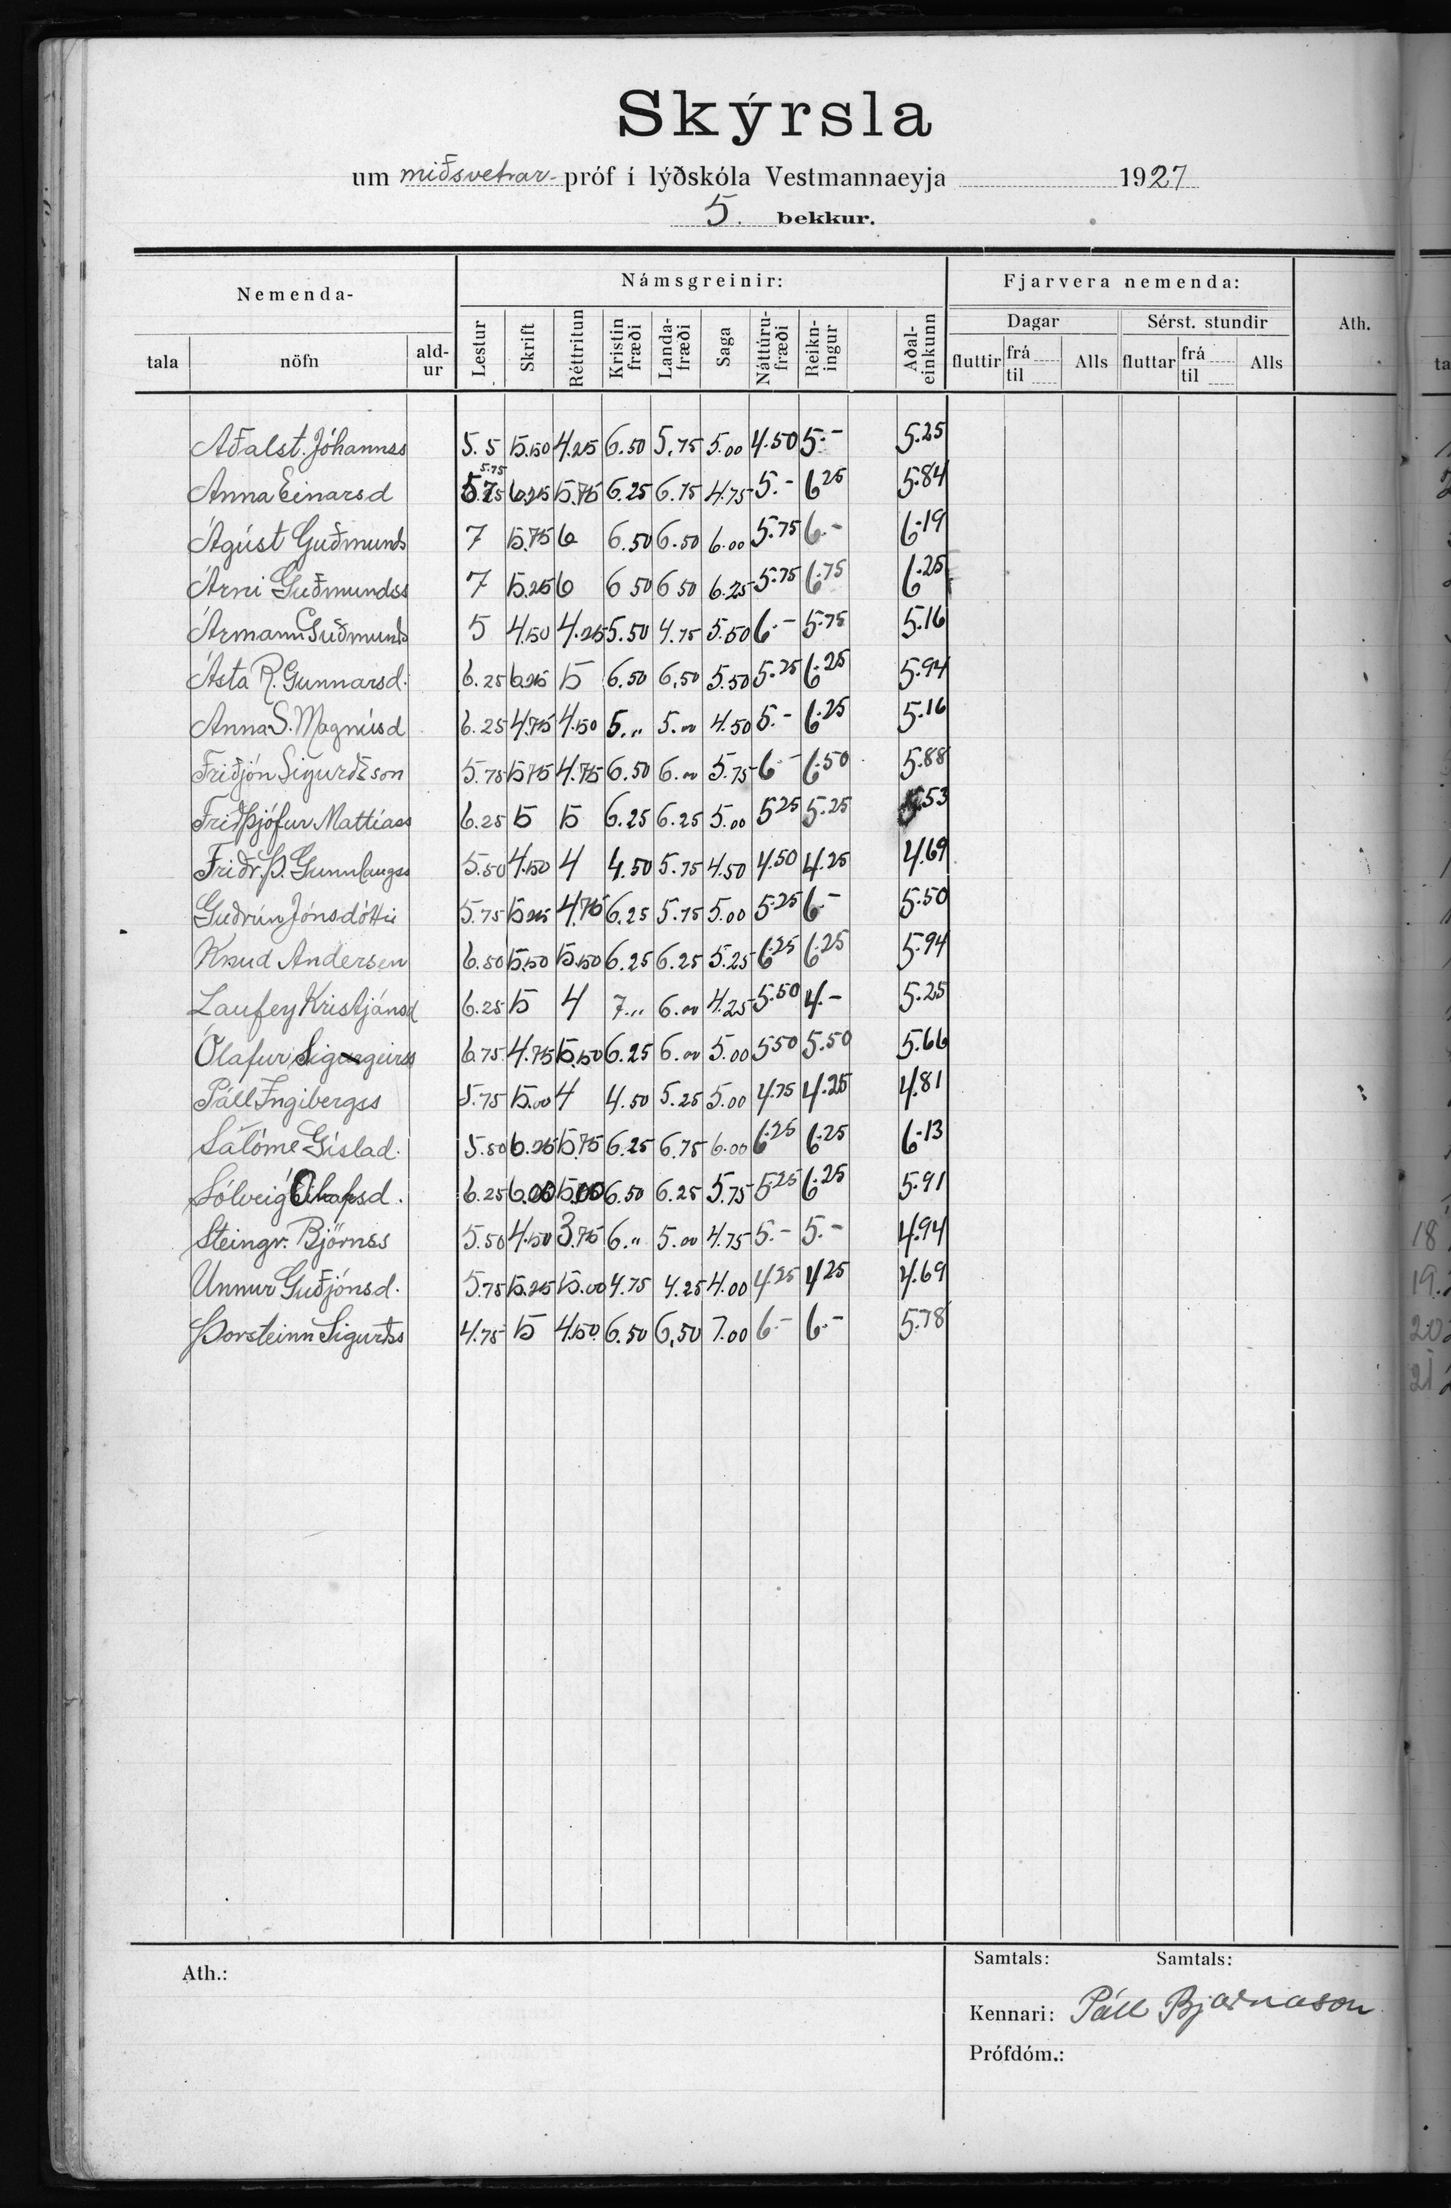 Skýrsla
um miðsvetrar- próf í lýðskóla Vestmannaeyja 1927
5. bekkur.
Nemenda- Námsgreinir: Fjarvera nemenda: Ath.
Dagar Sérst. stundir
tala nöfn ald-ur Lestur Skrift Réttritun Kristin fræði Landa-fræði Saga Náttúru-fræði Reikn-ingur Aðal-einkunn fluttir frá til Alls fluttar frá til Alls
Aðalst. Jóhannss 5.5 5.50 4.25 6.50 5.75 5.00 4.50 5.- 5.25
Anna Einarsd 5.75 5.75 6.25 5.75 6.25 6.75 4.75 5.- 6.25 5.84
Ágúst Guðmunds 7 5.75 6 6.50 6.50 6.00 5.75 6.- 6.19
Árni Guðmundss 7 5.25 6 6 50 6 50 6.25 5.75 6.75 6.25
Ármann Guðmunds 5 4.50 4.25 5.50 4.75 5.50 6.- 5.75 5.16
Ásta R. Gunnarsd. 6.25 6.25 5 6.50 6.50 5.50 5.25 6.25 5.94
Anna S. Magnúsd 6.25 4.75 4.50 5.,, 5.00 4.50 5.- 6.25 5.16
Friðjón Sigurðsson 5.75 5.75 4.75 6.50 6.00 5.75 6.- 6.50 5.88
Friðþjófur Mattíass 6.25 5 5 6.25 6.25 5.00 5.25 5.25 5.53
Friðr. Þ. Gunnlaugss 5.50 4.50 4 4.50 5.75 4.50 4.50 4.25 4.69
Guðrún Jónsdóttir 5.75 5.25 4.75 6.25 5.75 5.00 5.25 6.- 5.50
Knud Andersen 6.50 5.50 5.50 6.25 6.25 5.25 6.25 6.25 5.94
Laufey Kristjánsd 6.25 5 4 7.,, 6.00 4.25 5.50 4.- 5.25
Ólafur Sigurgeirss 6.75 4.75 5.50 6.25 6.00 5.00 5.50 5.50 5.66
Páll Ingibergss 5.75 5.00 4 4.50 5.25 5.00 4.75 4.25 4.81
Salóme Gíslad. 5.50 6.25 5.75 6.25 6.75 6.00 6.25 6.25 6.13
Sólveig Ólafsd. 6.25 6.00 5.00 6.50 6.25 5.75 5.25 6.25 5.91
Steingr. Björnss 5.50 4.50 3.75 6.,, 5.00 4.75 5.- 5.- 4.94
Unnur Guðjónsd. 5.75 5.25 5.00 4.75 4.25 4.00 4.25 4.25 4.69
Þorsteinn Sigurðss 4.75 5 4.50 6.50 6.50 7.00 6.- 6.- 5.78
18
19.
20
21
Ath.: Samtals: Samtals:
Kennari: Páll Bjarnason
Prófdóm.: